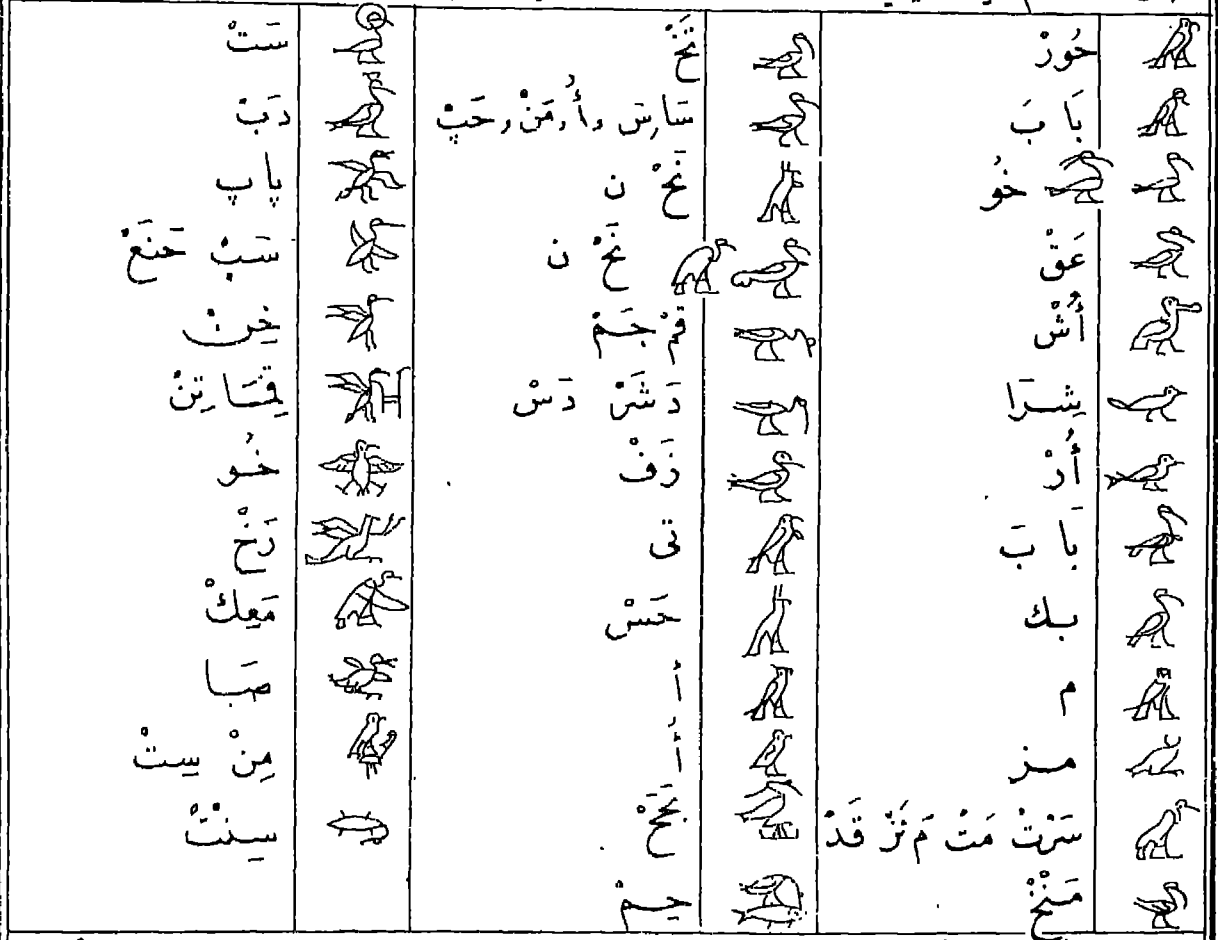 حُورْ
بَا بَ
خُو
عَقْ
أُشْ
شِرَا
أُرْ
بَا بَ
بك
م
مز
سَرْتْ مَتْ مَ نَرْ قَدْ
مَنْخْ
تَخْ
سَاسَ وأُ, مَنْ, حَپْ
نَحْ ن
نَحْ ن
قمْ جَمْ
دَشَرْ دَسْ
زَفْ
تى
حَسْ
أ
أُ
بَحَحْ
حِمْ
سَتْ
دَبْ
پاپ
سَبْ حَنَعْ
خِنْ
قِمَاتِنْ
خُو
رَخْ
مَعِكْ
صَبا
مِنْ سِتْ
سِنْتْ